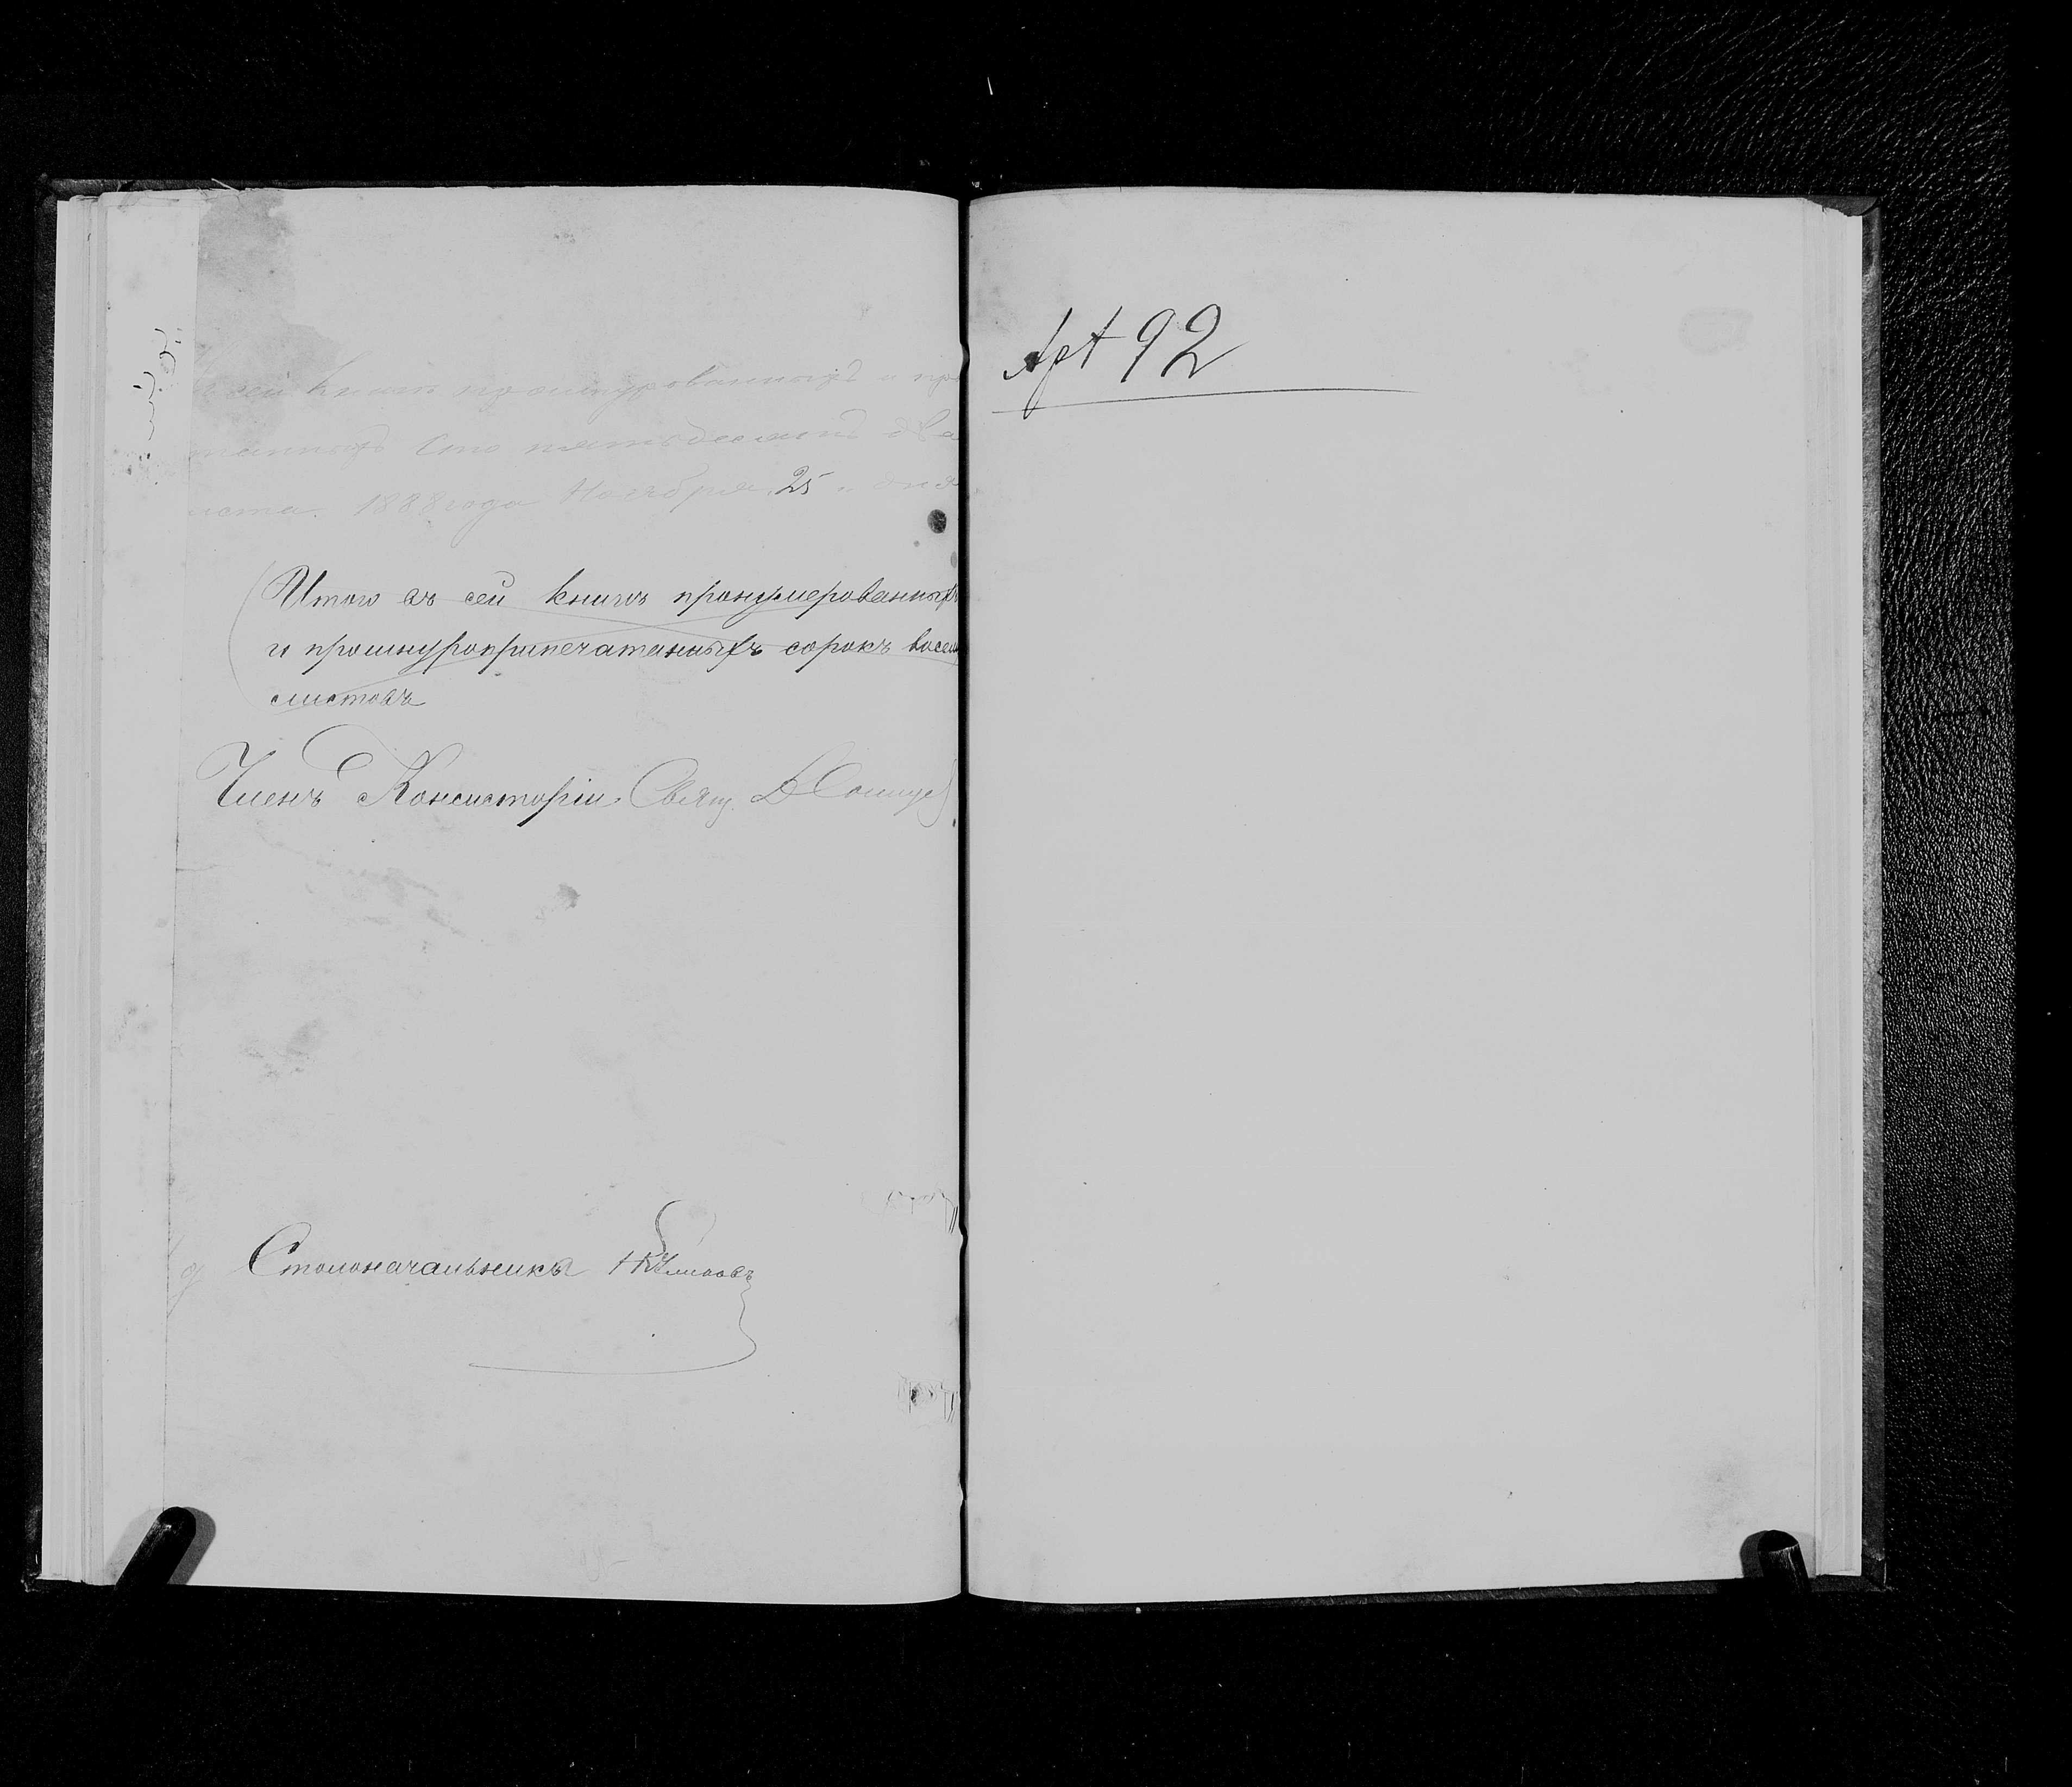 сей книги прошнурованныхъ и про
танныхъ Сто пятьдесятъ два
листа. 1888 года Ноября 25 дня
Итого въ сей книгѣ пронумерованныхъ
и прошнуроприпечатанныхъ сорокъ восемь
листовъ
Членъ Консисторіи Свящ. Д
Столоначальникъ
Арт 92